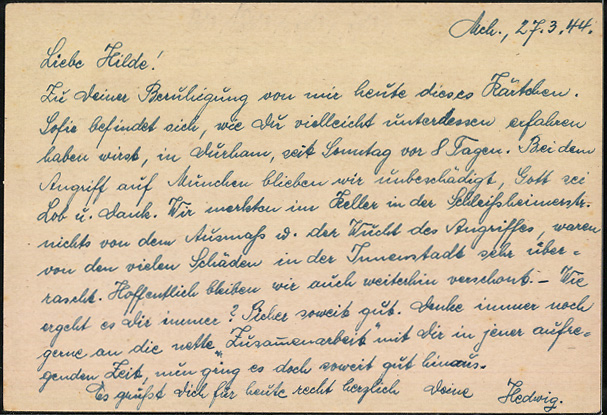 Mch., 27.3.44.
Liebe Hilde!
Zu Deiner Beruhigung von mir heute dieses Kärtchen.
Sofie befindet sich, wie Du vielleicht unterdessen erfahren
haben wirst, in Durham, seit Sonntag vor 8 Tagen. Bei dem
Angriff auf München blieben wir unbeschädigt, Gott sei
Lob u. Dank. Wir merkten im Keller in der Schleißheimerstr.
nichts von dem Ausmaß u. der Wucht des Angriffes, waren
von den vielen Schäden in der Innenstadt sehr über-
rascht. Hoffentlich bleiben wir auch weiterhin verschont. – Wie
ergeht es Dir immer? Sicher soweit gut. Denke immer noch
gerne an die nette „Zusammenarbeit" mit Dir in jener aufre-
genden Zeit, nun ging es doch soweit gut hinaus.
Es grüßt Dich für heute recht herzlich Deine Hedwig.